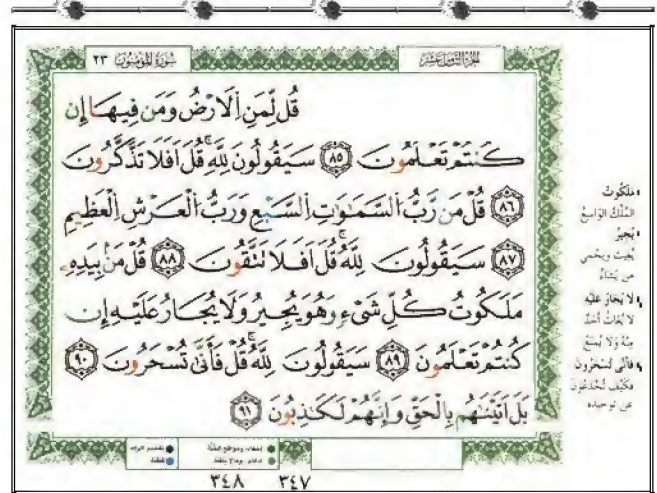 سُورَةُ المُؤْمِنُونَ ٢٣
الجُزْءُ الثَّامِنُ عَشَر
قُل لِّمَنِ اِ۬لَارْضُ وَمَن فِيهَا إِن
كُنتُمْ تَعْلَمُونَ ٨٥ سَيَقُولُونَ لِلهِۖ قُلَ اَفَلَا تَذَّكَّرُونَ
٨٦ قُلْ مَن رَّبُّ السَّمَٰوَٰتِ اِ۬لسَّبْعِ وَرَبُّ الْعَرْشِ اِ۬لْعَظِيمِ
٨٧ سَيَقُولُونَ لِلهِۖ قُلَ اَفَلَا تَتَّقُونَ ٨٨ قُلْ مَنۢ بِيَدِهِۦ
مَلَكُوتُ كُلِّ شَےْءٍ وَهُوَ يُجِيرُ وَلَا يُجَارُ عَلَيْهِ إِن
كُنتُمْ تَعْلَمُونَ ٨٩ سَيَقُولُونَ لِلهِۖ قُلْ فَأَنَّىٰ تُسْحَرُونَ ٩٠
بَلَ اَتَيْنَٰهُم بِالْحَقِّ وَإِنَّهُمْ لَكَٰذِبُونَ ٩١
مَلَكُوتُ
المُلْكُ الوَاسِعُ
يُجِيرُ
يُغِيثُ ويَحْمِي
من يَشَاءُ
لا يُجَارُ عَلَيْهِ
لا يُغَاثُ أَحَدٌ
مِنْهُ وَلا يُمْنَعُ
فَأَنَّى تُسْحَرُونَ
فكَيْفَ تُخْدَعُونَ
عن توحيده
إخفاء، ومواقع الغُنَّة
ادغام، وما لا يلفظ
تفخيم الراء
قلقلة
٣٤٨ ٣٤٧